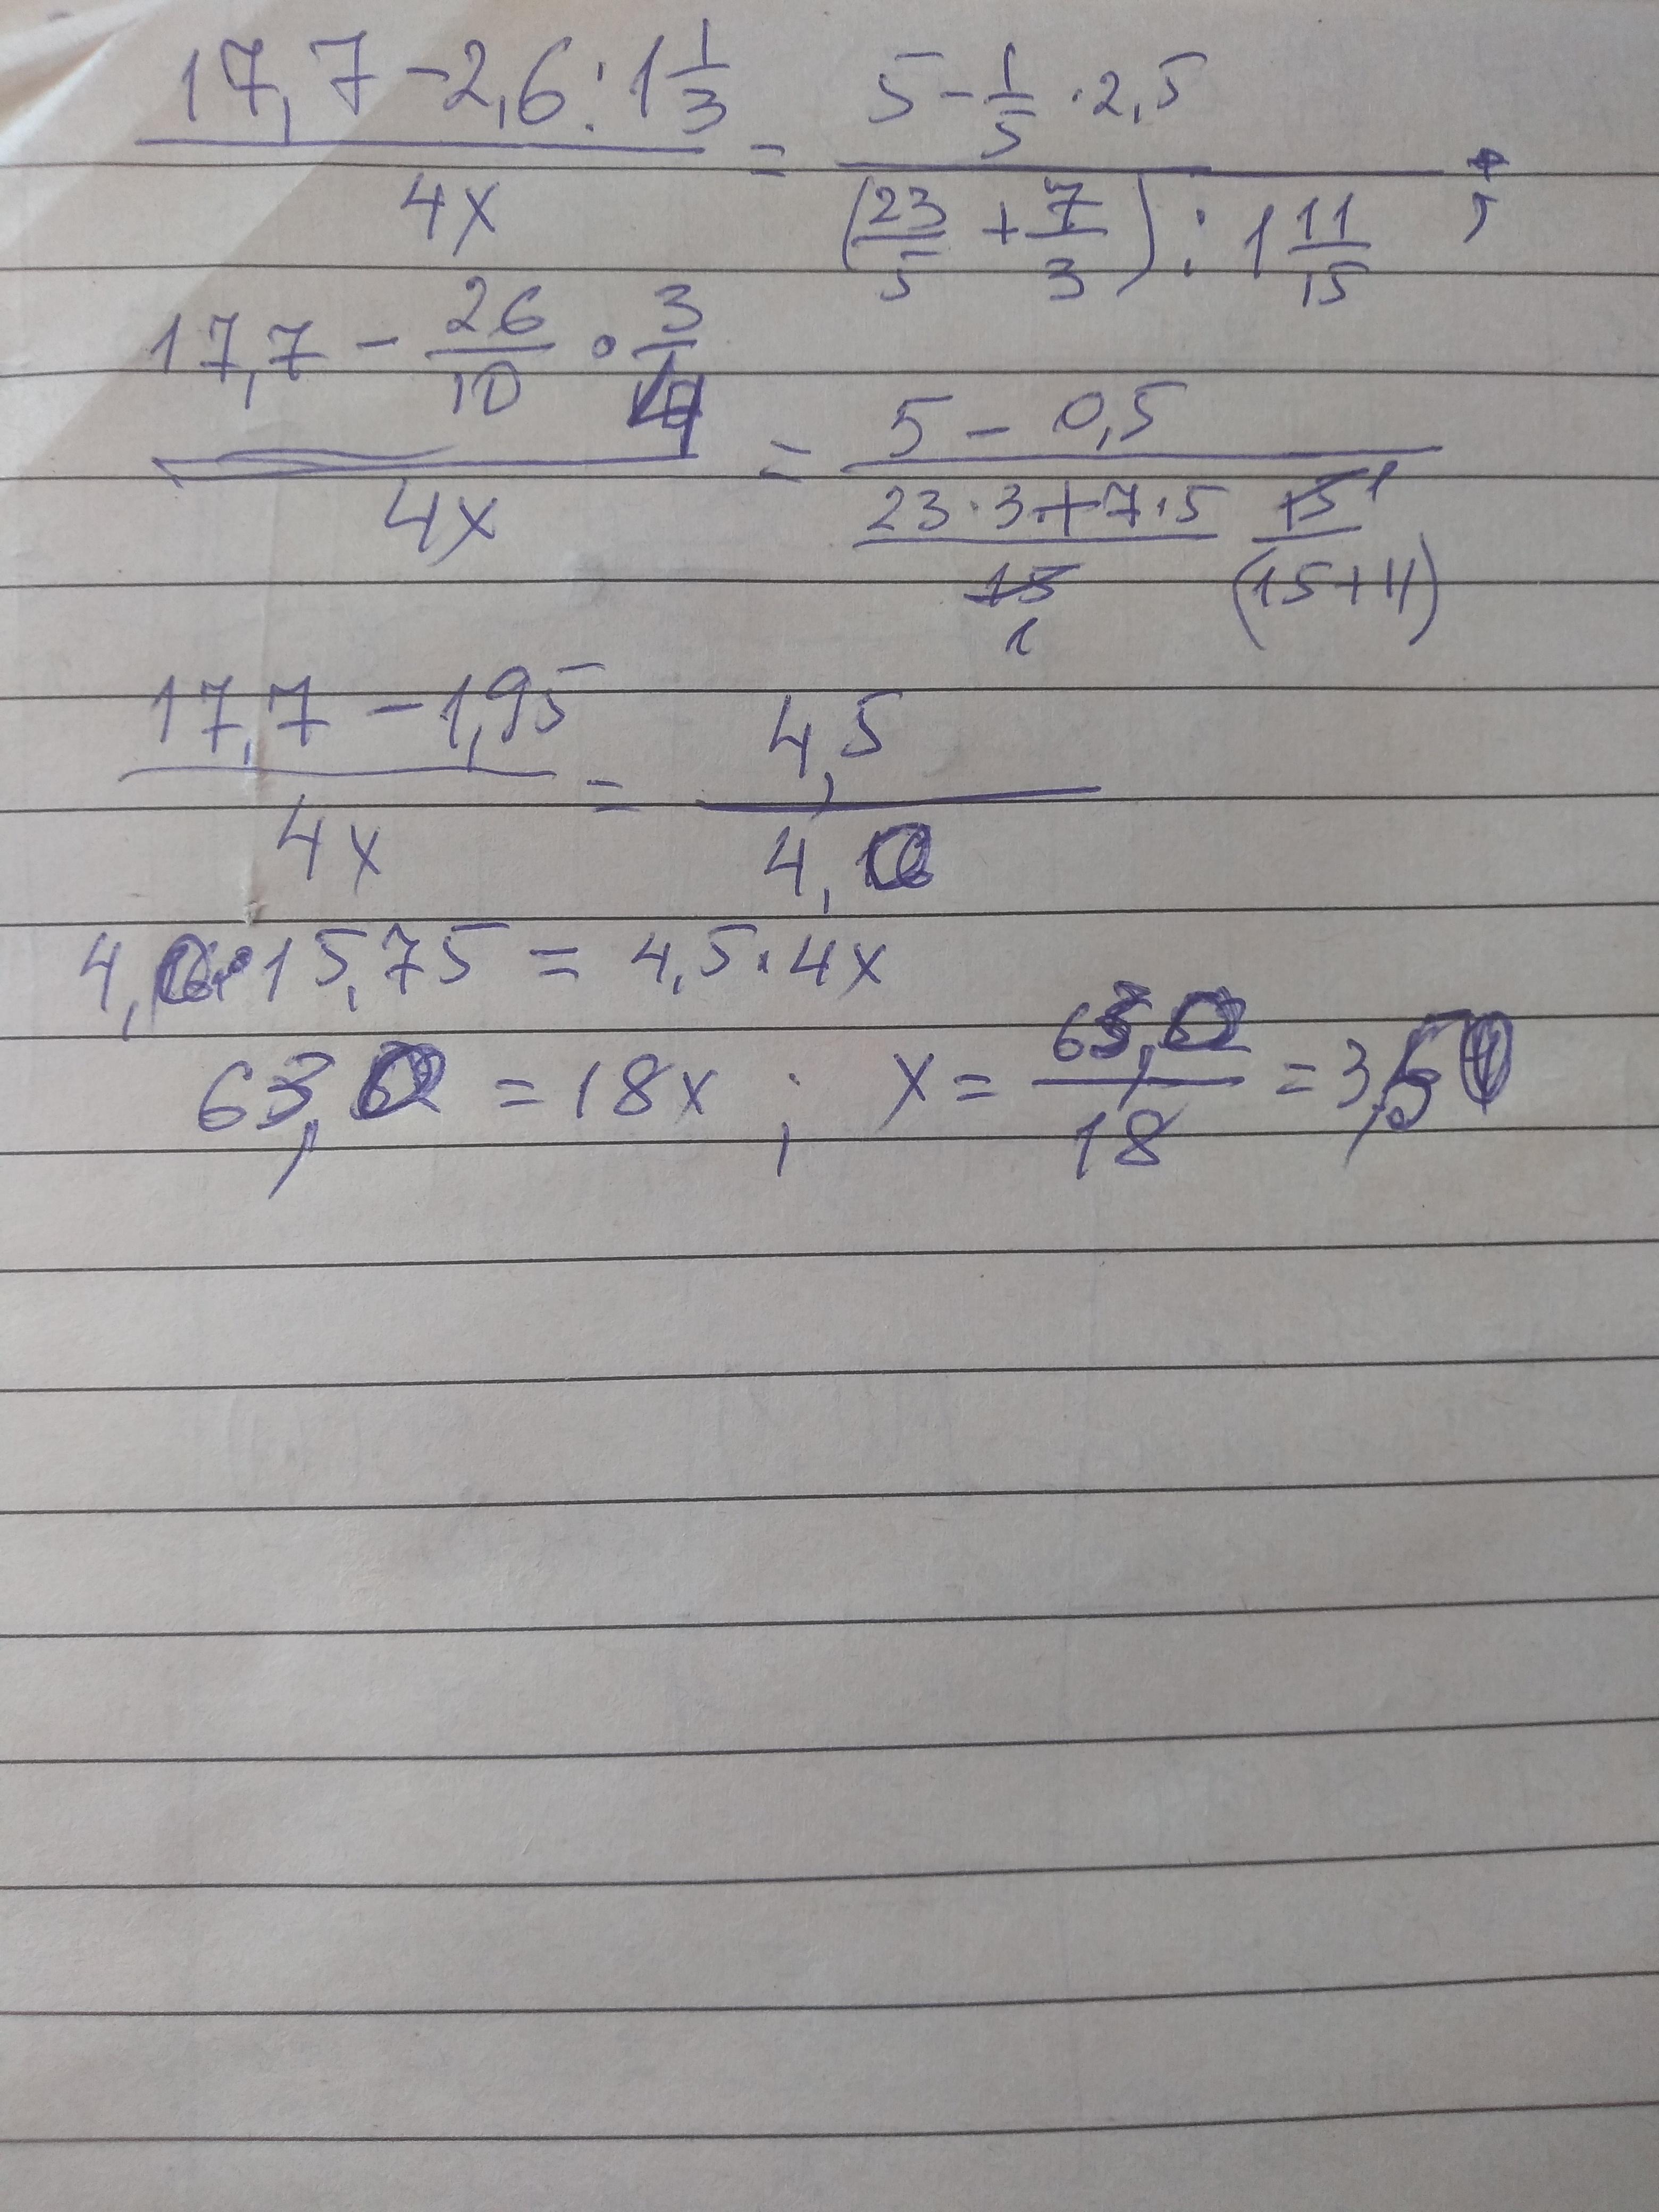 (17,7 - 2,6 : 1 1/3) / 4x = (5 - 1/5 · 2,5) / ((23/5 + 7/3) : 1 11/15) ;
(17,7 - 26/10 · 3/4) / 4x = (5 - 0,5) / ((23·3+7·5)/15 15/(15+11)) 1 1
(17,7 - 1,95) / 4x = 4,5 / 4,0
4,0·15,75 = 4,5·4x
63,0 = 18x ; x = 63,0/18 = 3,5